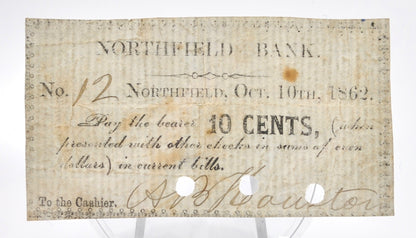 NORTHFIELD BANK.
No. 12 NORTHFIELD, OCT. 10TH, 1862.
Pay the bearer 10 CENTS, (when
presented with other checks in sums of even
dollars) in current bills.
To the Cashier. Houston